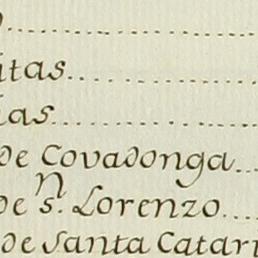 itas
ias
de Covadonga
de Sn. Lorenzo
de Santa Catar